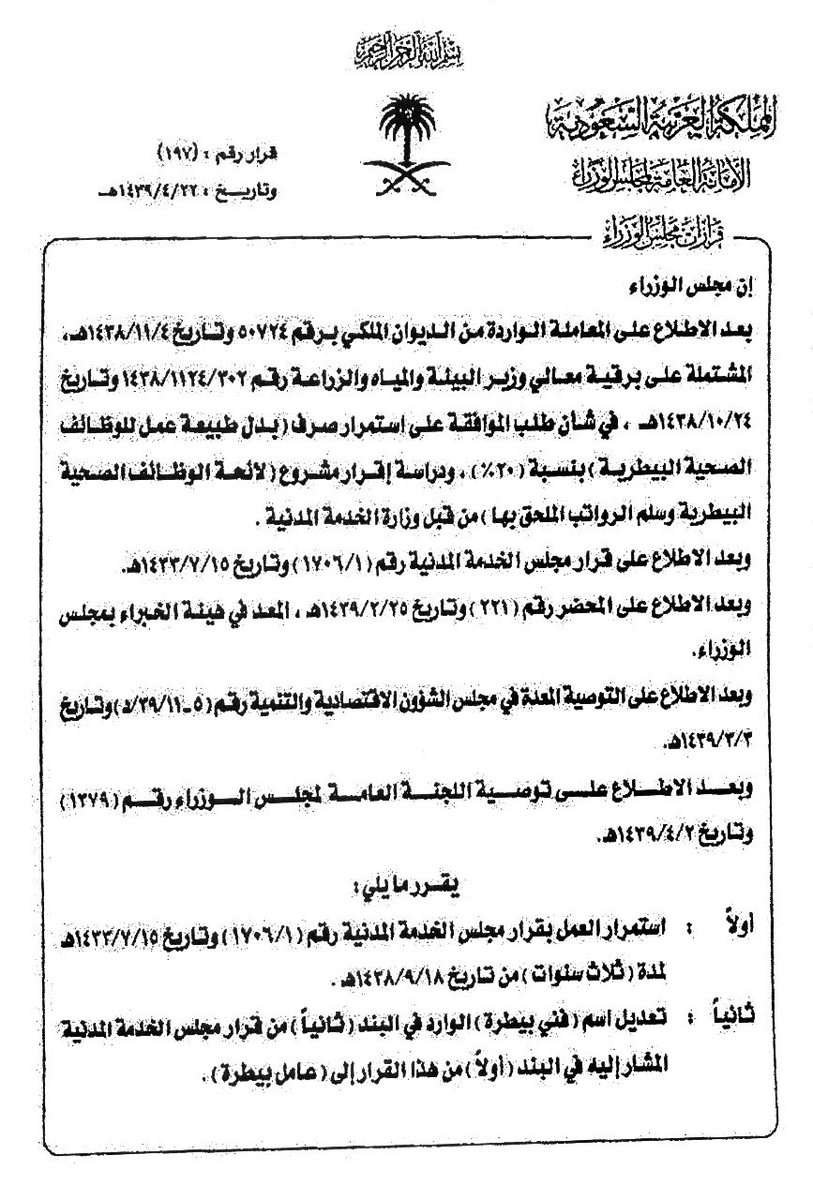 بسم الله الرحمن الرحيم
المملكة العربية السعودية
الأمانة العامة لمجلس الوزراء
قرار رقم : (١٩٧)
وتاريخ : ١٤٣٩/٤/٢٢هـ
قرارات مجلس الوزراء
إن مجلس الوزراء
بعد الاطلاع على المعاملة الواردة من الديوان الملكي برقم ٥٠٧٢٤ وتاريخ ١٤٣٨/١١/٤هـ،
المشتملة على برقية معالي وزير البيئة والمياه والزراعة رقم ١٤٣٨/١١٢٤/٣٠٢ وتاريخ
١٤٣٨/١٠/٢٤هـ ، في شأن طلب الموافقة على استمرار صرف (بدل طبيعة عمل للوظائف
الصحية البيطرية) بنسبة (٢٠٪) ، ودراسة إقرار مشروع (لائحة الوظائف الصحية
البيطرية وسلم الرواتب الملحق بها) من قبل وزارة الخدمة المدنية .
وبعد الاطلاع على قرار مجلس الخدمة المدنية رقم (١٧٠٦/١) وتاريخ ١٤٣٣/٧/١٥هـ.
وبعد الاطلاع على المحضر رقم (٢٢١) وتاريخ ١٤٣٩/٢/٢٥هـ ، المعد في هيئة الخبراء بمجلس
الوزراء.
وبعد الاطلاع على التوصية المعدة في مجلس الشؤون الاقتصادية والتنمية رقم (٥-٣٩/١١/د) وتاريخ
١٤٣٩/٣/٣هـ.
وبعد الاطلاع على توصية اللجنة العامة لمجلس الوزراء رقم (١٣٧٩)
وتاريخ ١٤٣٩/٤/٢هـ.
يقرر ما يلي :
أولاً : استمرار العمل بقرار مجلس الخدمة المدنية رقم (١٧٠٦/١) وتاريخ ١٤٣٣/٧/١٥هـ
لمدة (ثلاث سنوات) من تاريخ ١٤٣٨/٩/١٨هـ .
ثانياً : تعديل اسم (فني بيطرة) الوارد في البند (ثانياً) من قرار مجلس الخدمة المدنية
المشار إليه في البند (أولاً) من هذا القرار إلى (عامل بيطرة) .